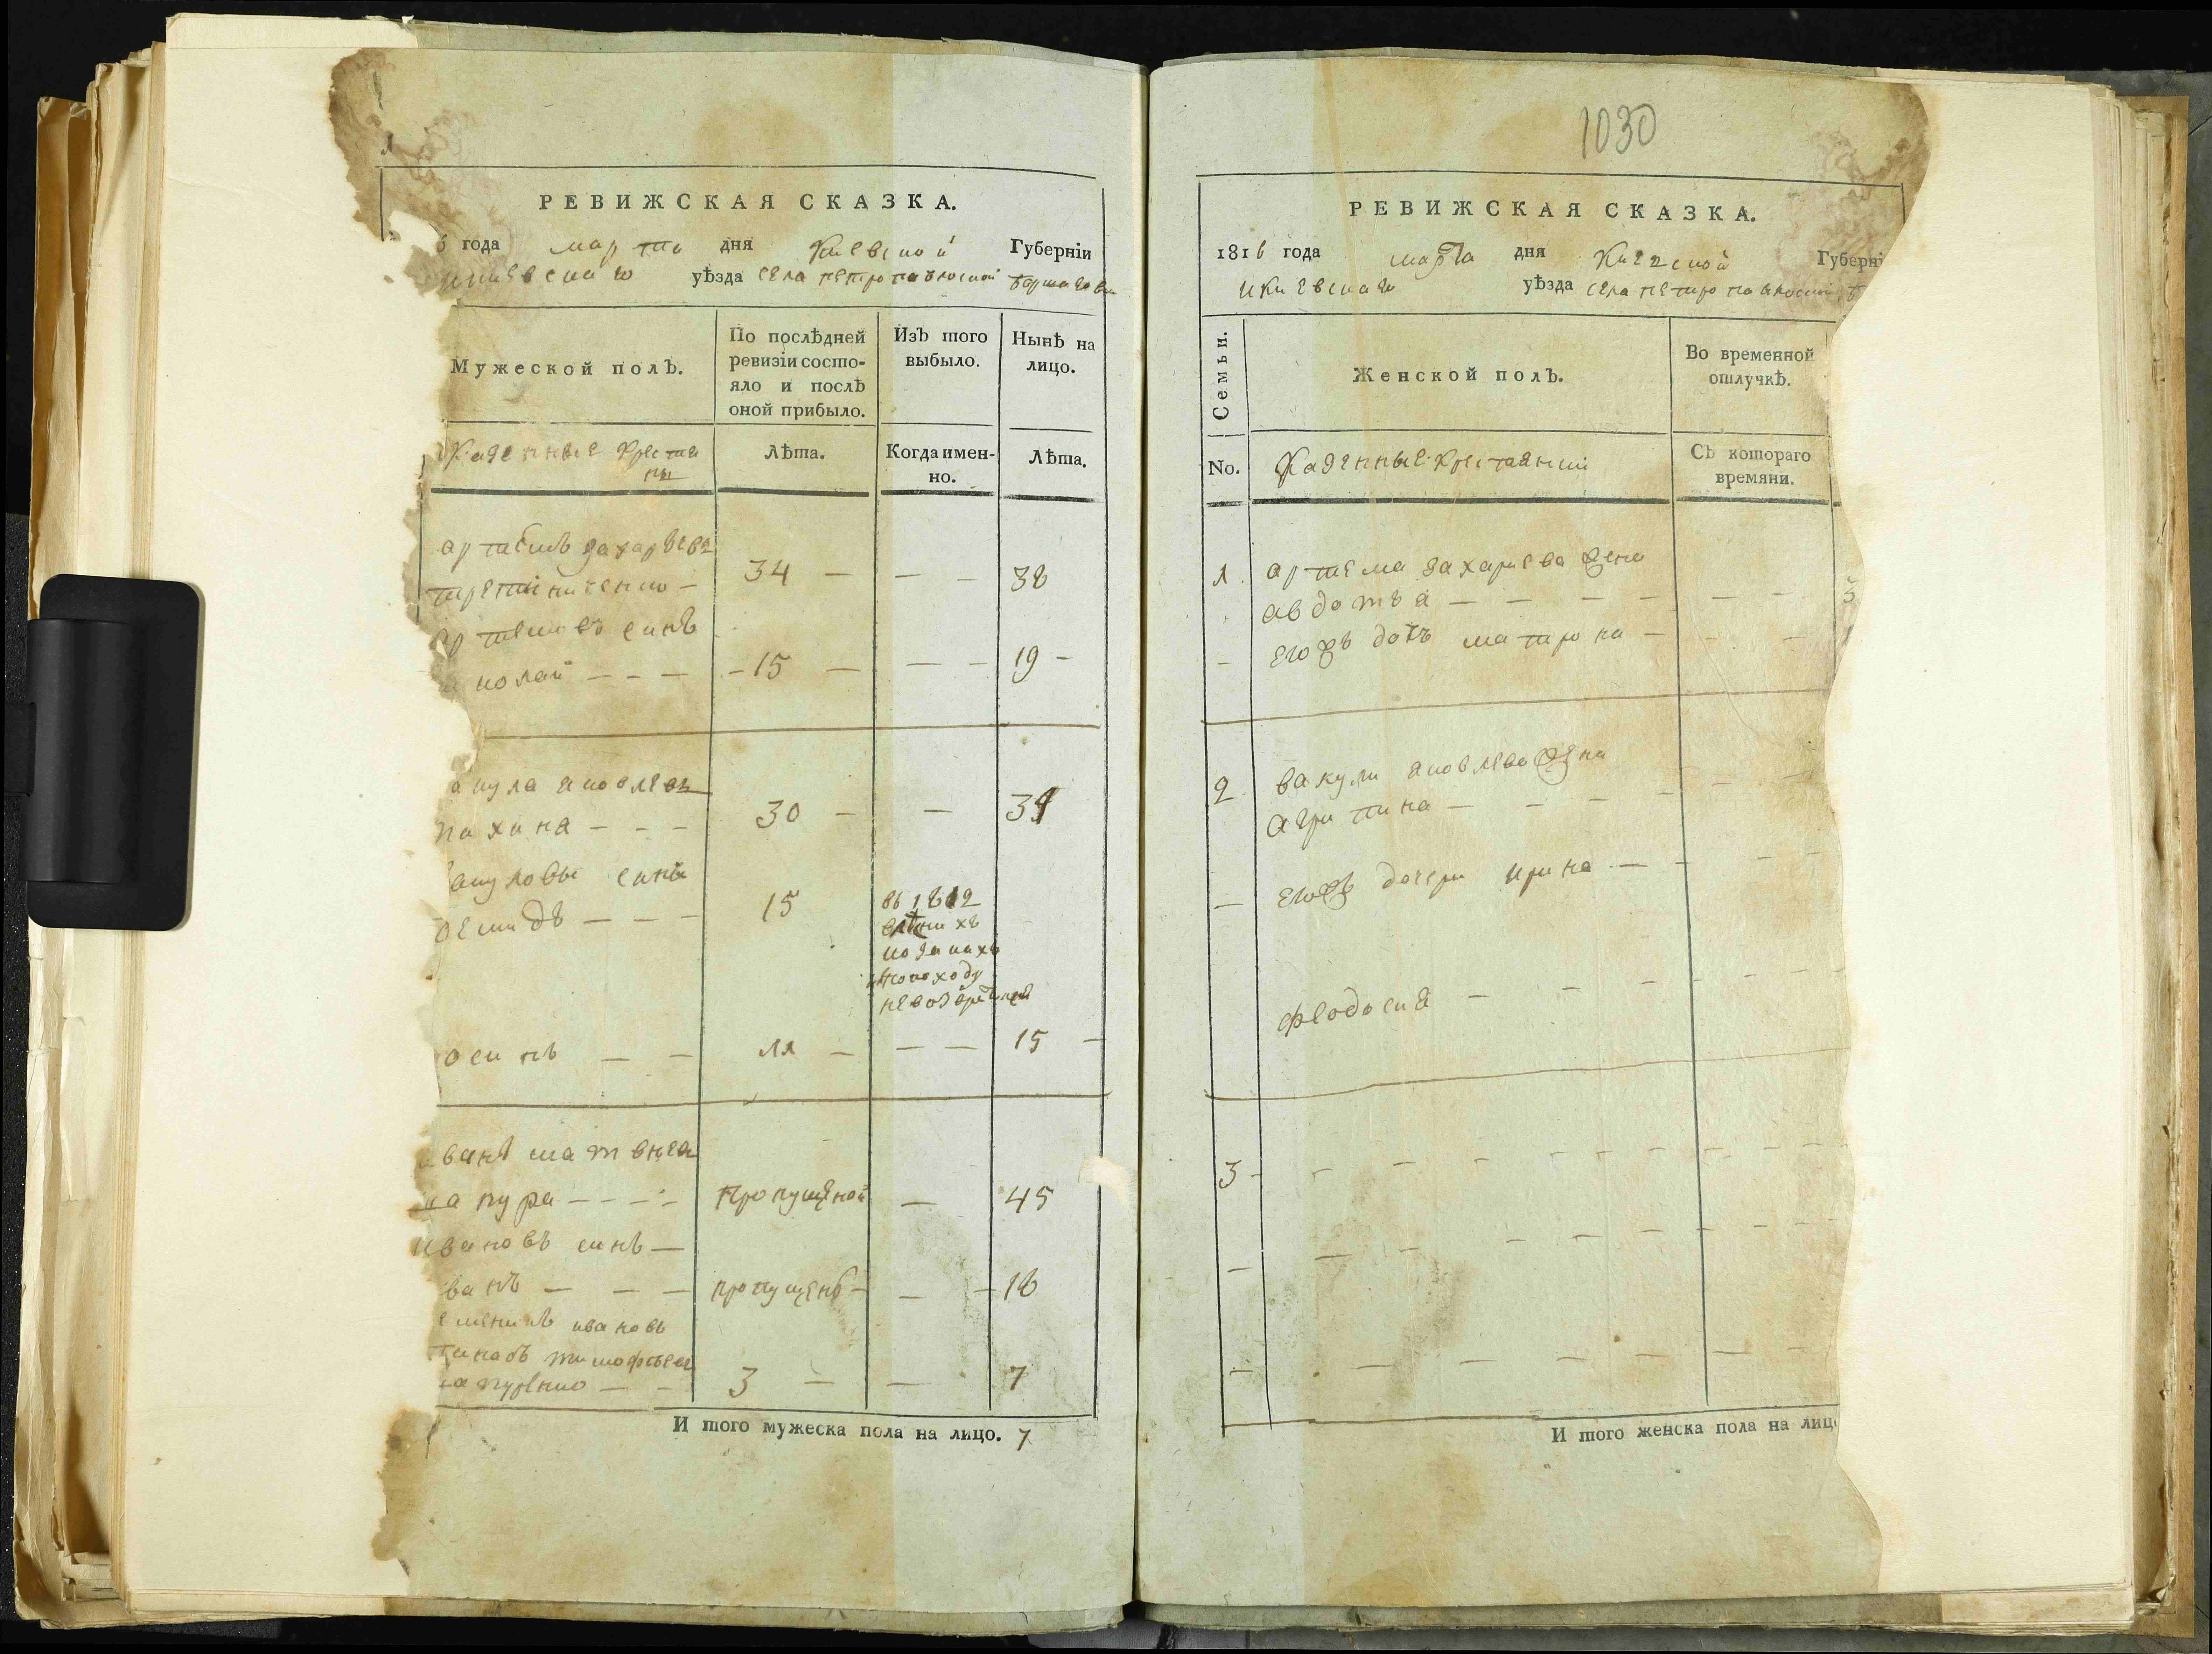 РЕВИЖСКАЯ СКАЗКА.
6 года марта дня Киевской Губерніи
киевскаго уѣзда села петропавлоской борщаговки
Мужеской полъ.
По послѣдней ревизіи состо-
яло и послѣ
оной прибыло.
Изъ того
выбыло.
Нынѣ на
лицо.
Казенные крестья
ны
лѣта.
Когда имен-
но.
Лѣта.
артемъ захарьевъ
34 — — — 38
артемовъ синъ
колай — — — 15 — — — 19 —
акула яковлевъ
30 — — 34
акуловы сины
демидъ — — — 15
въ 1812
козакахъ
осипъ — — 11 — — — 15 —
иванъ матвеев
цапура — — — — пропущеной — 45
ивановъ синъ —
ванъ — — — пропущенъ — — — 18
ивановъ
тимофеев
3 — — 7
И того мужеска пола на лицо. 7
1030
РЕВИЖСКАЯ СКАЗКА.
1816 года марта дня Киевской Губерні
икиевскаго уѣзда села петропавлоской б
Семьи.
Женской полъ.
Во временной
отлучкѣ.
No.
Казенные крестьянки
Съ котораго
времяни.
1 артема захариева жена
авдотья — — — — — — 3
— егожъ дочь матрона — — —
2 вакули яковлева жена
агрипина — — — — —
— егожъ дочери ирина — — — —
феодосия — — — — —
3 — — — — — — — — — —
— — — — — — — — —
— — — — — — —
И того женска пола на лиц